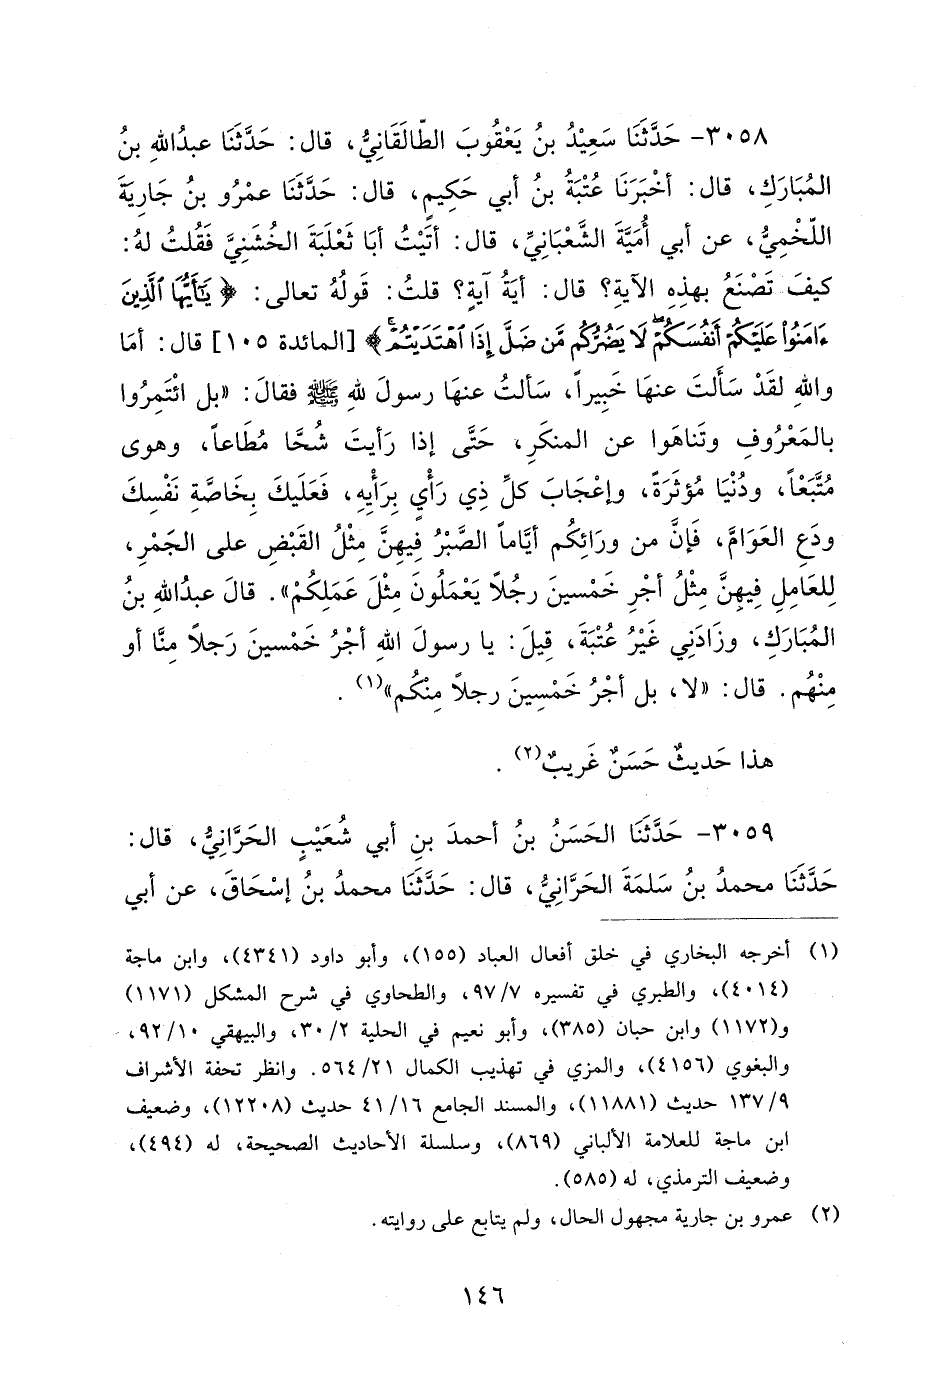 ٣٠٥٨- حَدَّثَنَا سَعِيْدُ بنُ يَعْقُوبَ الطَّالَقَانِيُّ، قال: حَدَّثَنَا عبدُالله بنُ
المُبَارَكِ، قال: أخْبَرَنَا عُتْبَةُ بنُ أبي حَكِيمٍ، قال: حَدَّثَنَا عمْرُو بنُ جَارِيَةَ
اللّخْمِيُّ، عن أبي أُمَيَّةَ الشَّعْبَانِيِّ، قال: أتَيْتُ أبَا ثَعْلَبَةَ الخُشَنِيَّ فَقُلتُ لهُ:
كيفَ تَصْنَعُ بهذِهِ الآيةِ؟ قال: أيَةُ آيةٍ؟ قلتُ: قَولُهُ تعالى: ﴿ يَٰٓأَيُّهَا ٱلَّذِينَ
ءَامَنُوا۟ عَلَيْكُمْ أَنفُسَكُمْ ۖ لَا يَضُرُّكُم مَّن ضَلَّ إِذَا ٱهْتَدَيْتُمْ ۚ﴾ [المائدة ١٠٥] قال: أمَا
واللهِ لقَدْ سَأَلتَ عنهَا خَبِيراً، سَألتُ عنهَا رسولَ للهِ ﷺ فقالَ: «بل ائْتَمِرُوا
بالمَعْرُوفِ وتَناهَوا عن المنكَرِ، حَتَّى إذا رَأيتَ شُحَّا مُطَاعاً، وهوى
مُتَّبَعْاً، ودُنْيَا مُؤثَرَةً، وإعْجَابَ كلِّ ذِي رَأْيٍ بِرَأْيِهِ، فَعَلَيكَ بِخَاصَّةِ نَفْسِكَ
ودَعِ العَوَامَّ، فَإنَّ من ورَائِكُم أيَّاماً الصَّبْرُ فِيهِنَّ مِثْلُ القَبْضِ على الجَمْرِ،
لِلعَامِلِ فِيهِنَّ مِثْلُ أجْرِ خَمْسينَ رجُلاً يَعْمَلُونَ مِثْلَ عَمَلِكُمْ». قالَ عبدُالله بنُ
المُبَارَكِ، وزَادَنِي غَيْرُ عُتْبَةَ، قِيلَ: يا رسولَ اللهِ أجْرُ خَمْسينَ رَجلاً مِنَّا أو
مِنْهُم. قال: «لا، بل أجْرُ خَمْسِينَ رجلاً مِنْكُم»(١) .
هذا حَديثٌ حَسَنٌ غَريبٌ(٢) .
٣٠٥٩- حَدَّثَنَا الحَسَنُ بنُ أحمدَ بنِ أبي شُعَيْبٍ الحَرَّانِيُّ، قال:
حَدَّثَنَا محمدُ بنُ سَلمَةَ الحَرَّانِيُّ، قال: حَدَّثَنَا محمدُ بنُ إسْحَاقَ، عن أبي
(١) أخرجه البخاري في خلق أفعال العباد (١٥٥)، وأبو داود (٤٣٤١)، وابن ماجة
(٤٠١٤)، والطبري في تفسيره ٩٧/٧، والطحاوي في شرح المشكل (١١٧١)
و(١١٧٢) وابن حبان (٣٨٥)، وأبو نعيم في الحلية ٣٠/٢، والبيهقي ٩٢/١٠،
والبغوي (٤١٥٦)، والمزي في تهذيب الكمال ٥٦٤/٢١. وانظر تحفة الأشراف
١٣٧/٩ حديث (١١٨٨١)، والمسند الجامع ٤١/١٦ حديث (١٢٢٠٨)، وضعيف
ابن ماجة للعلامة الألباني (٨٦٩)، وسلسلة الأحاديث الصحيحة، له (٤٩٤)،
وضعيف الترمذي، له (٥٨٥).
(٢) عمرو بن جارية مجهول الحال، ولم يتابع على روايته.
١٤٦